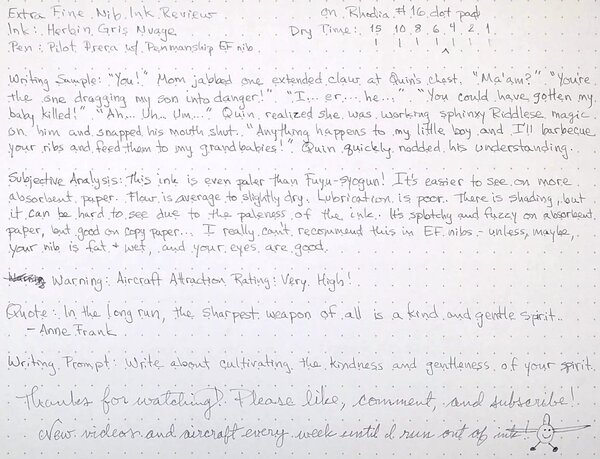 Extra Fine Nib Ink Review on Rhodia #16 dot pad
Ink: Herbin Gris Nuage Dry Time: 15 10 8 6 4 2 1
Pen: Pilot Prera w/ Penmanship EF nib
Writing Sample: "You!" Mom jabbed one extended claw at Quin's chest. "Ma'am?" "You're
the one dragging my son into danger!" "I... er... he..." "You could have gotten my
baby killed!" "Ah... Uh... Um..." Quin realized she was working sphinxy Riddlese magic
on him and snapped his mouth shut. "Anything happens to my little boy and I'll barbecue
your ribs and feed them to my grandbabies!" Quin quickly nodded his understanding.
Subjective Analysis: This ink is even paler than Fuyu-syogun! It's easier to see on more
absorbent paper. Flow is average to slightly dry. Lubrication is poor. There is shading, but
it can be hard to see due to the paleness of the ink. It's splotchy and fuzzy on absorbent
paper, but good on copy paper... I really can't recommend this in EF nibs - unless, maybe,
your nib is fat & wet, and your eyes are good.
Warning: Aircraft Attraction Rating: Very High!
Quote: In the long run, the sharpest weapon of all is a kind and gentle spirit.
- Anne Frank
Writing Prompt: Write about cultivating the kindness and gentleness of your spirit.
Thanks for watching! Please like, comment, and subscribe!
New videos and aircraft every week until I run out of ink!